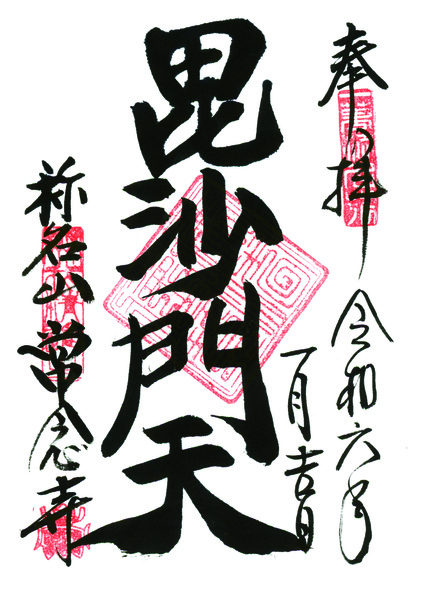 奉拝
令和六年
一月吉日
毘沙門天
称名山 常念寺